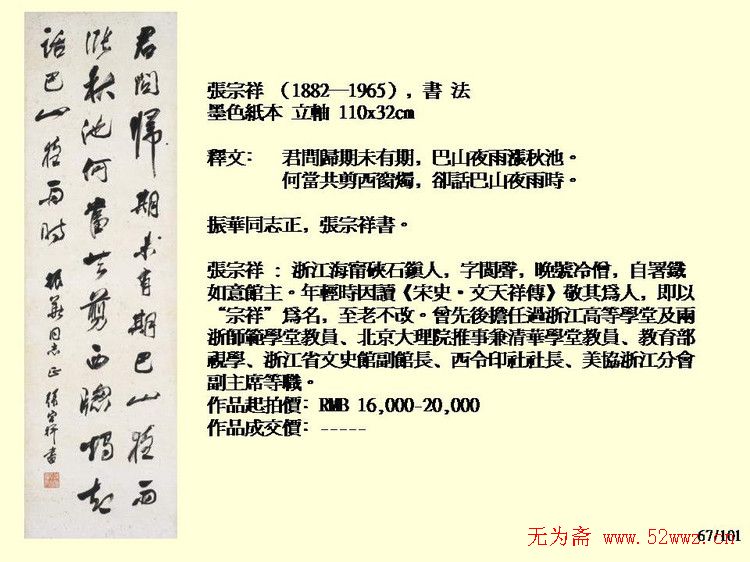 君問歸期未有期巴山夜雨
漲秋池何當共剪西窗燭却
話巴山夜雨時 振華同志正 張宗祥書
張宗祥 （1882—1965），書 法
墨色紙本 立軸 110x32cm
釋文： 君問歸期未有期，巴山夜雨漲秋池。
何當共剪西窗燭，卻話巴山夜雨時。
振華同志正，張宗祥書。
張宗祥 ：浙江海甯硤石鎭人，字閬聲，晚號冷僧，自署鐵
如意館主。年輕時因讀《宋史·文天祥傳》敬其爲人，即以
“宗祥”爲名，至老不改。曾先後擔任過浙江高等學堂及兩
浙師範學堂教員、北京大理院推事兼清華學堂教員、教育部
視學、浙江省文史館副館長、西令印社社長、美協浙江分會
副主席等職。
作品起拍價：RMB 16,000-20,000
作品成交價：-----
无为斋 www.52wwz.cn
67/101